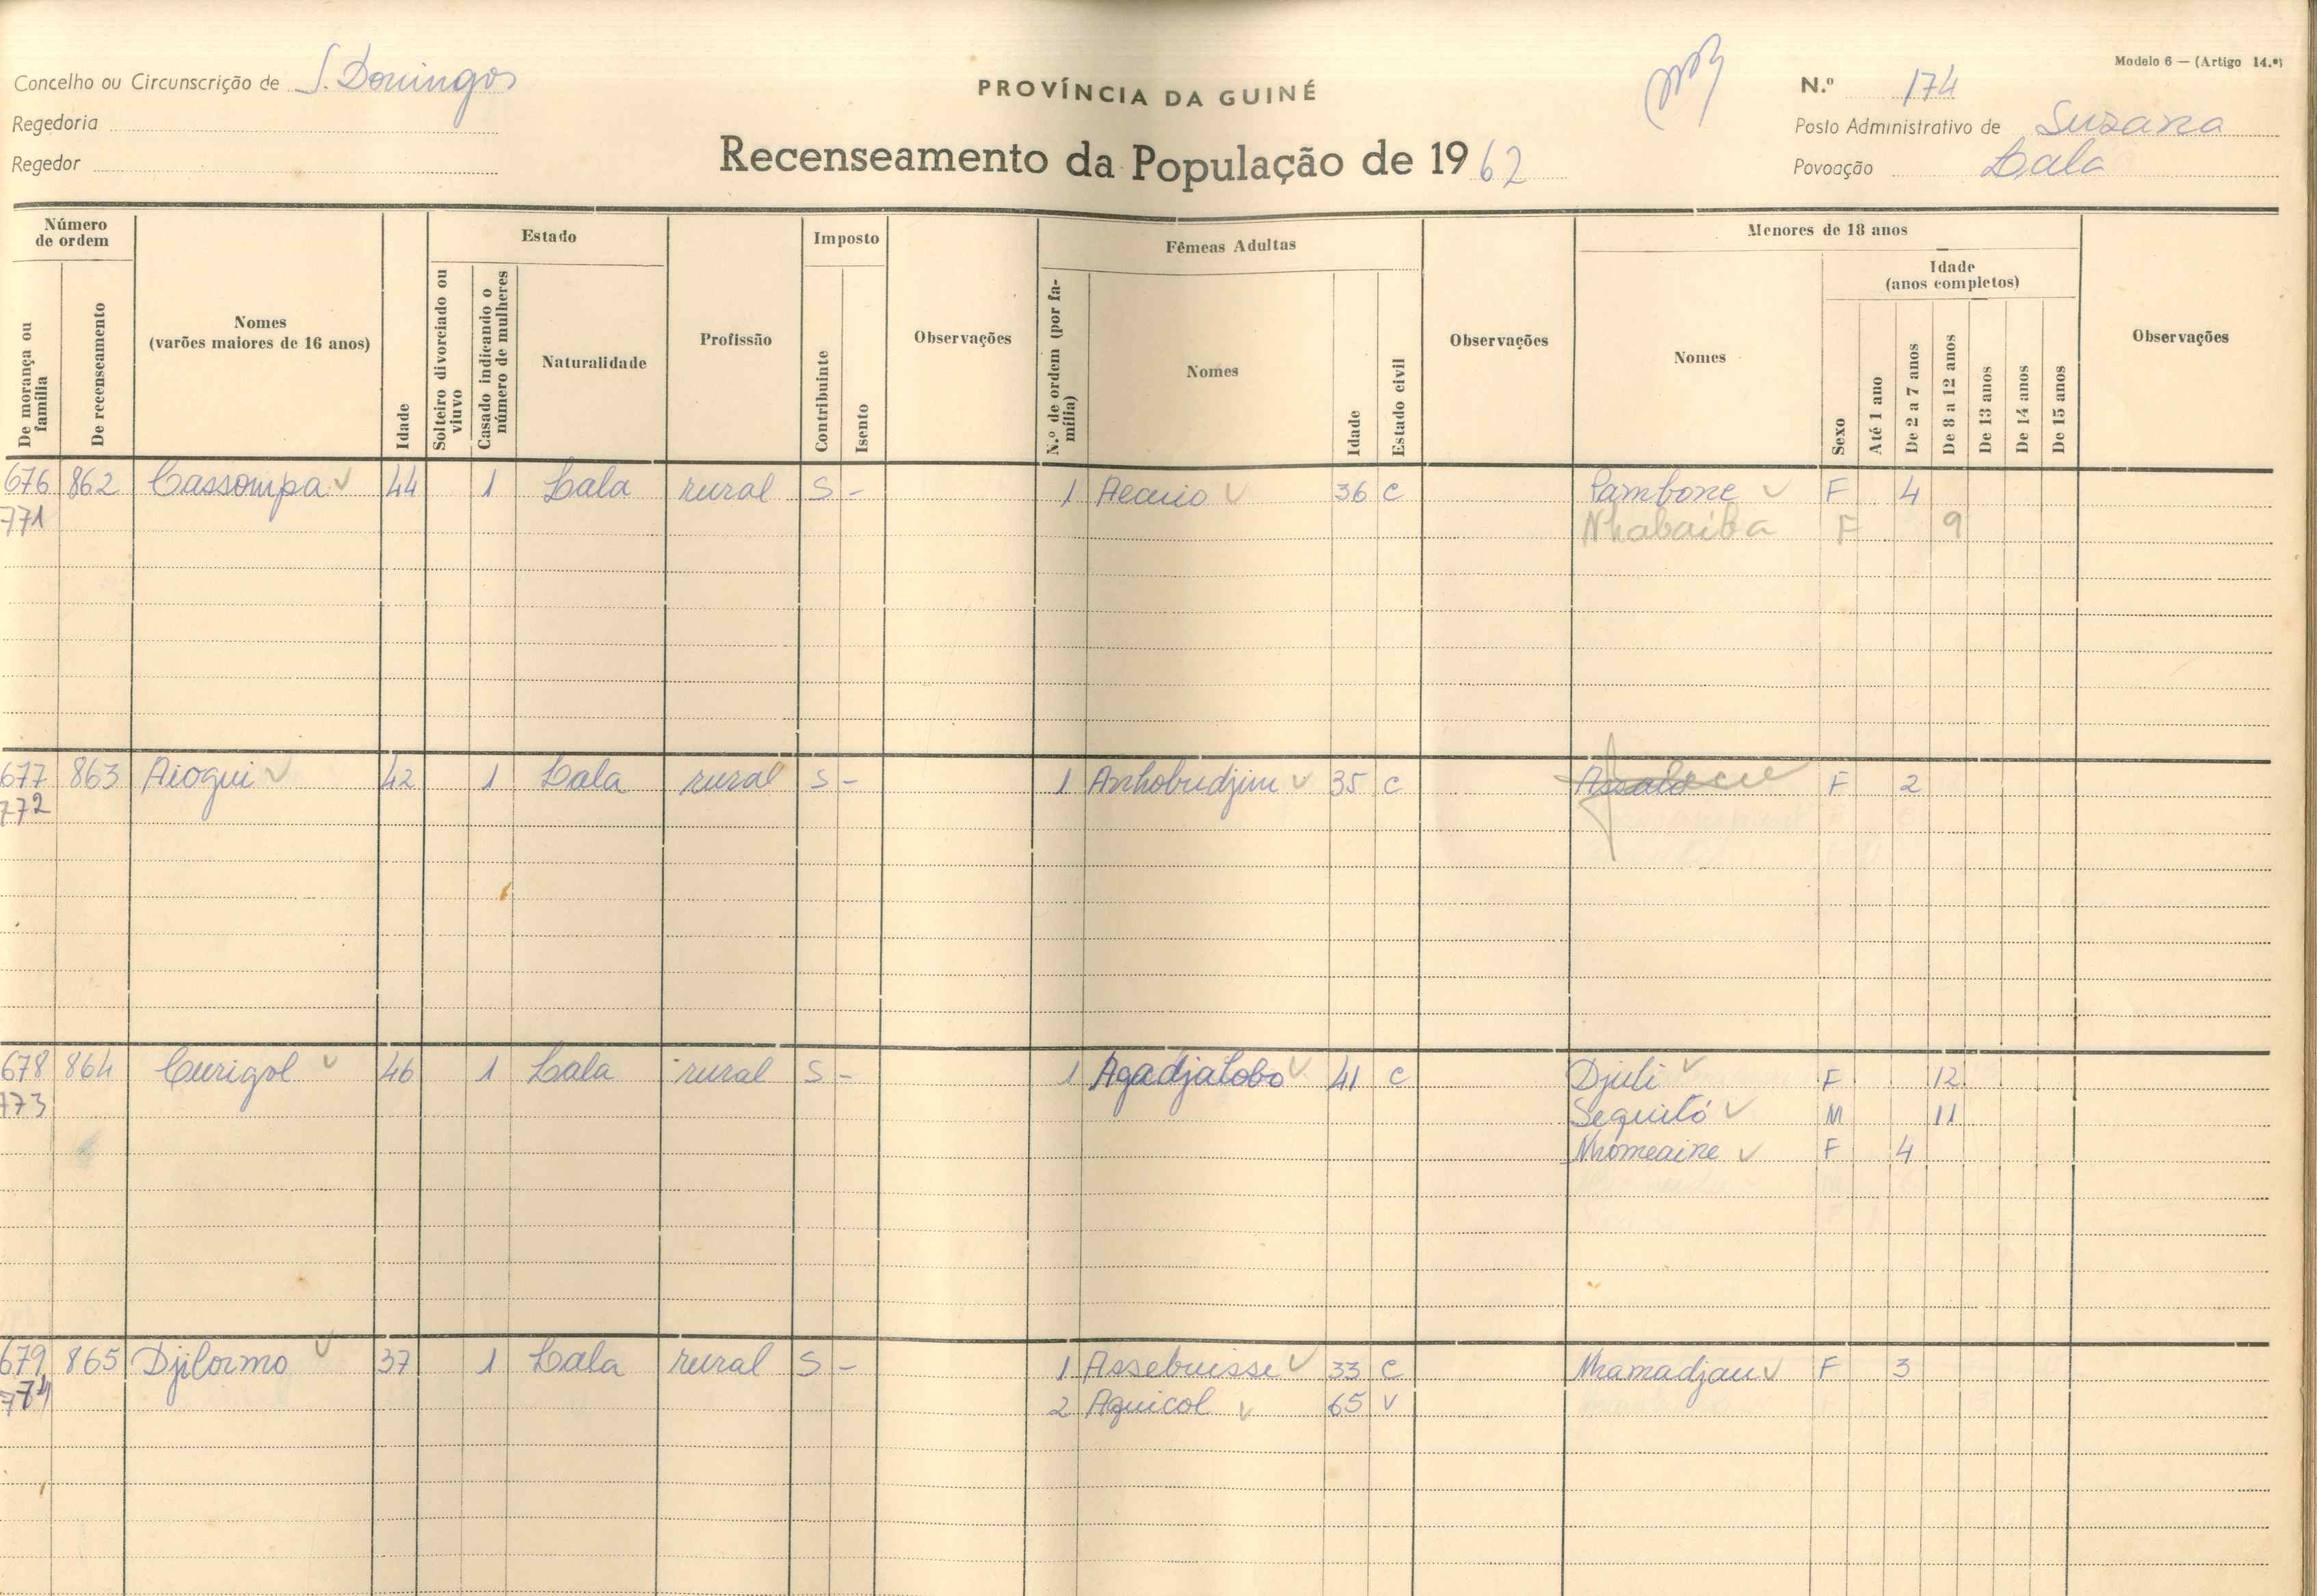 Modelo 6 — (Artigo 14.º)
Concelho ou Circunscrição de S. Domingos
PROVÍNCIA DA GUINÉ
N.º 174
Regedoria
Posto Administrativo de Suzana
Regedor
Recenseamento da População de 1962
Povoação Lala
Número de ordem
De morança ou família
De recenseamento
Nomes
(varões maiores de 16 anos)
Idade
Estado
Solteiro divorciado ou viuvo
Casado indicando o número de mulheres
Naturalidade
Profissão
Imposto
Contribuinte
Isento
Observações
Fêmeas Adultas
N.º de ordem (por família)
Nomes
Idade
Estado civil
Observações
Menores de 18 anos
Nomes
Sexo
Idade
(anos completos)
Até 1 ano
De 2 a 7 anos
De 8 a 12 anos
De 13 anos
De 14 anos
De 15 anos
Observações
676 862 Cassompa 44 1 Lala rural S - 1 36 C Pambone F 4
771 Nhabaiba F 9
677 863 Aiogui 42 1 Lala rural S - 1 Anhobudjim 35 C F 2
772
678 864 Curigol 46 1 Lala rural S - 1 Agadjalobo 41 C Djuli F 12
773 Sequitó M 11
Nhomeaine F 4
679 865 Djilormo 37 1 Lala rural S - 1 Assebuisse 33 C Nhamadjau F 3
774 2 Aquicol 65 V